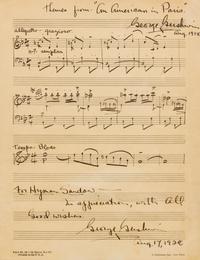 Themes from "An American in Paris"
George Gershwin
Aug 1928
Allegretto grazioso
Tempo Blues
For Hyman Sandow —
In appreciation, with all
Good wishes
George Gershwin
Aug 17, 1928